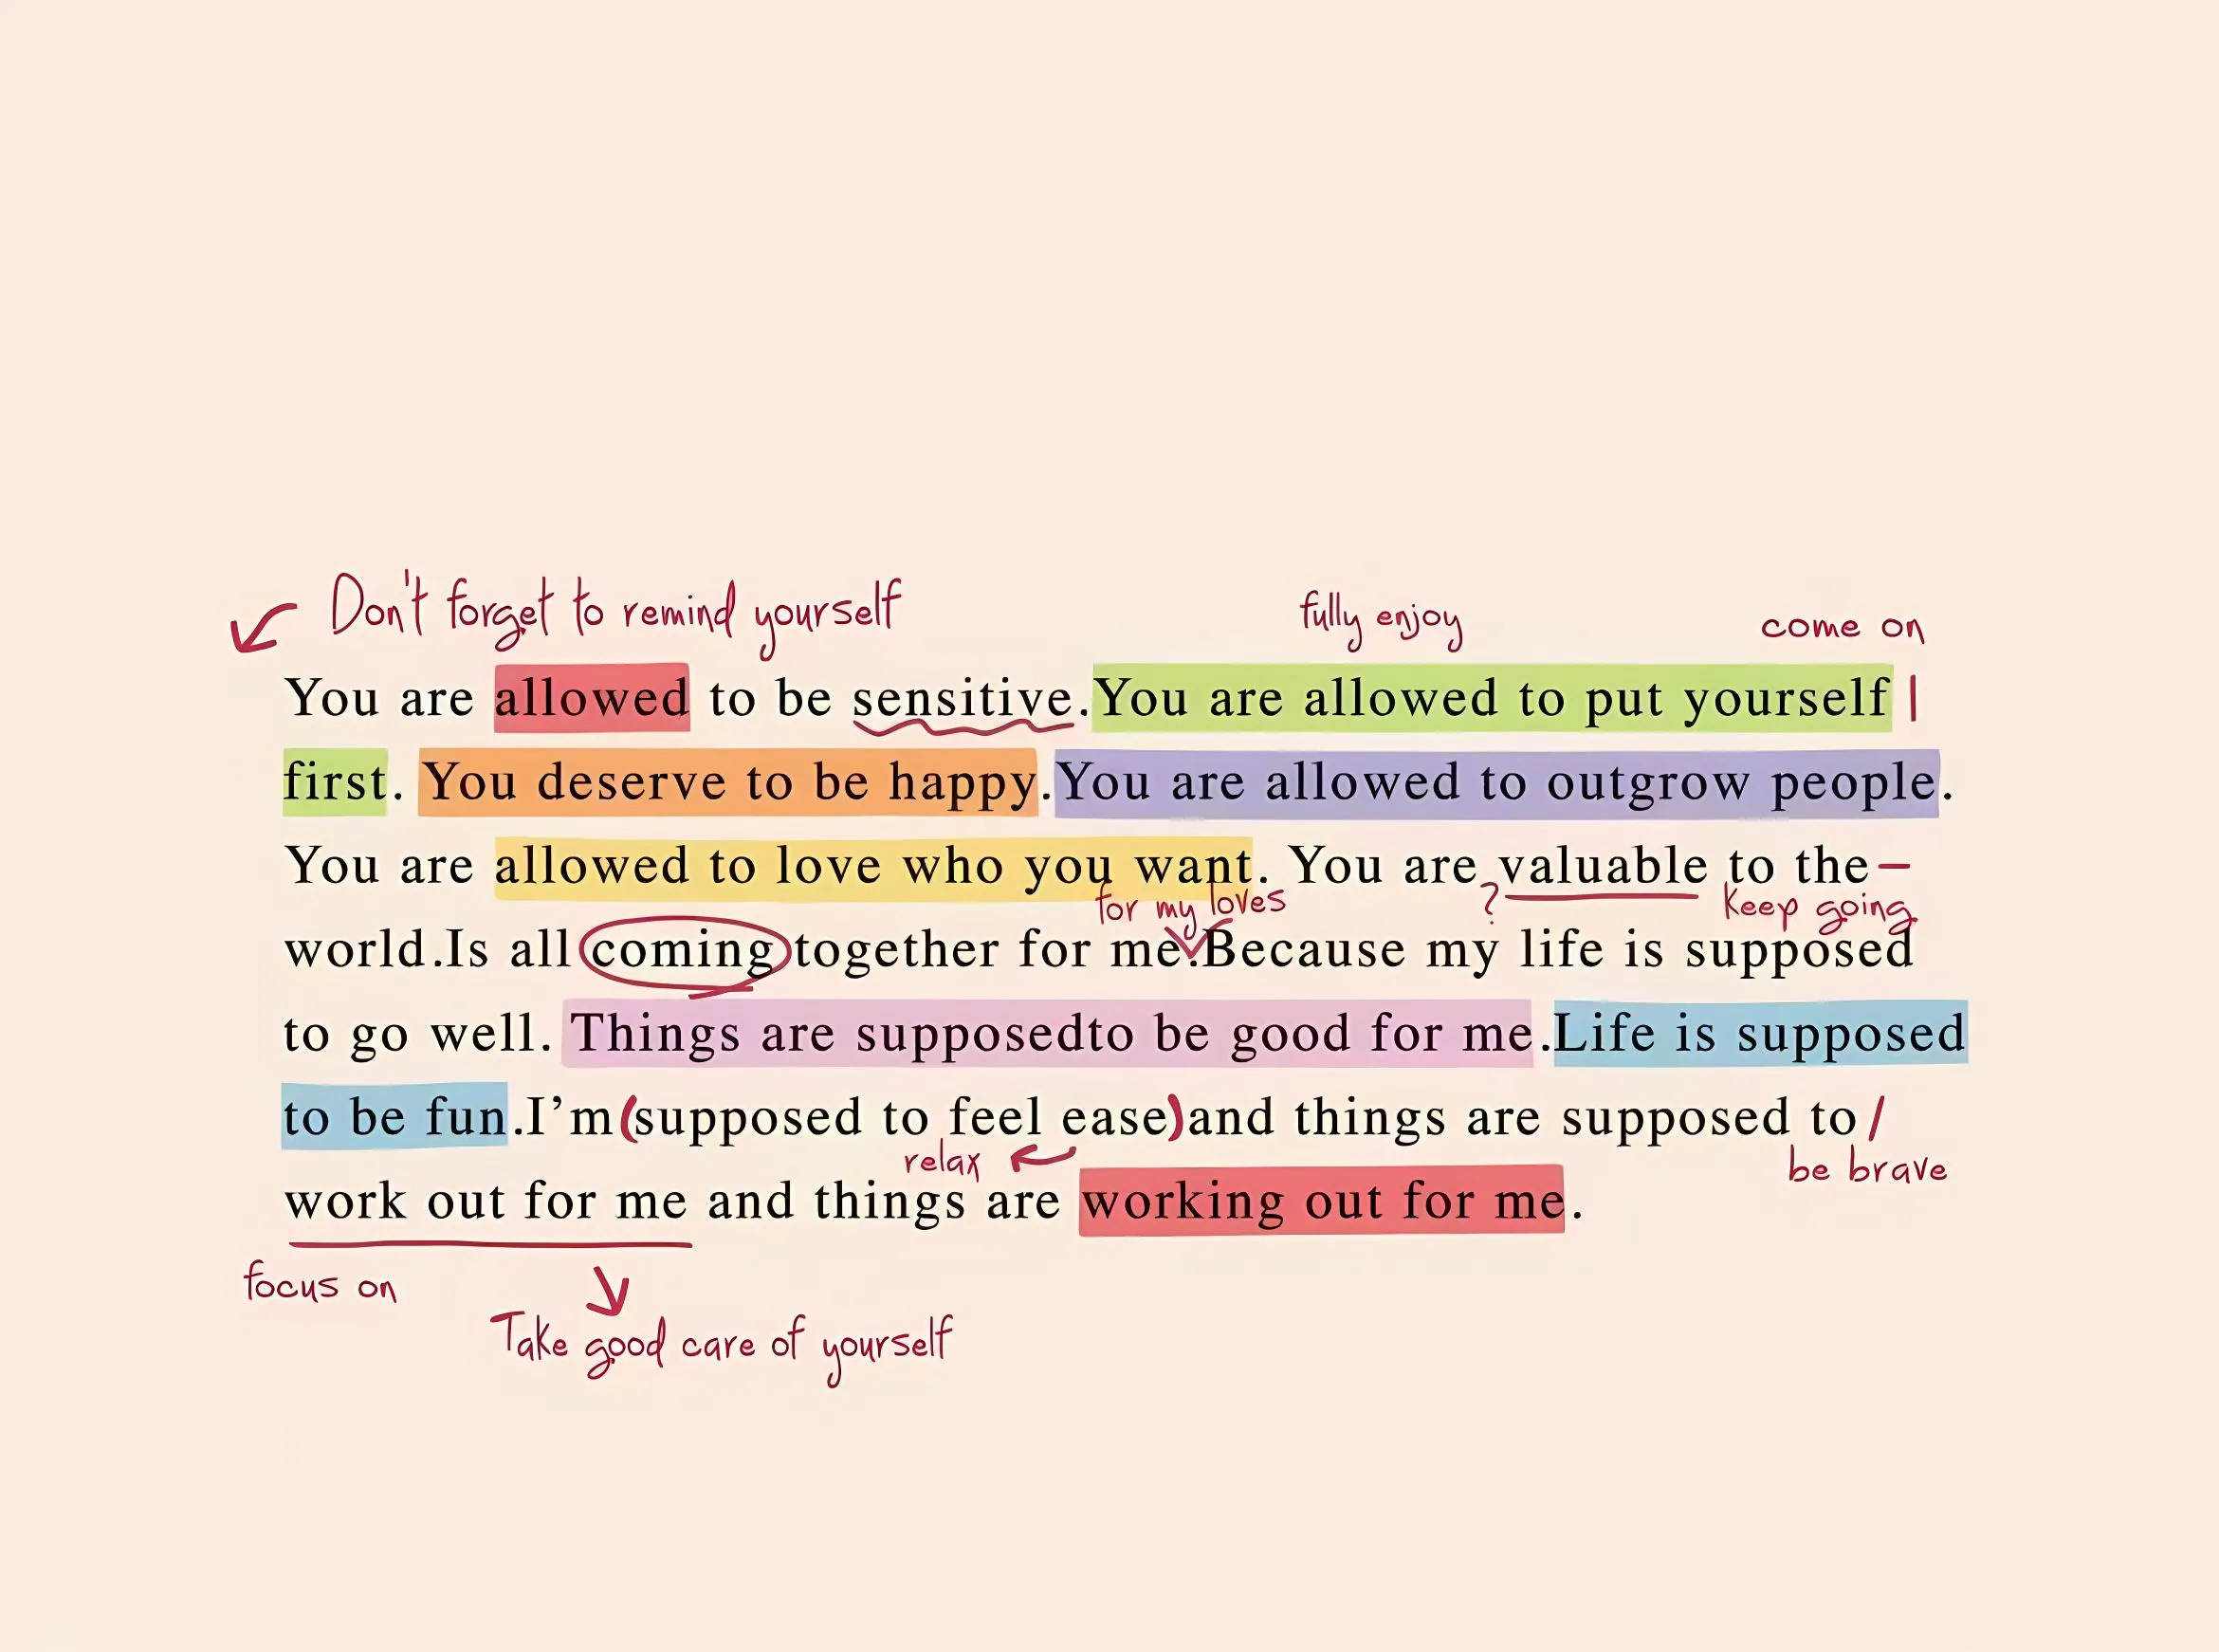 Don't forget to remind yourself
fully enjoy
come on
You are allowed to be sensitive.You are allowed to put yourself |
first. You deserve to be happy.You are allowed to outgrow people.
You are allowed to love who you want. You are valuable to the—
for my loves
?
keep going
world.Is all coming together for me.Because my life is supposed
to go well. Things are supposedto be good for me.Life is supposed
to be fun.I’m(supposed to feel ease)and things are supposed to/
relax
be brave
work out for me and things are working out for me.
focus on
Take good care of yourself